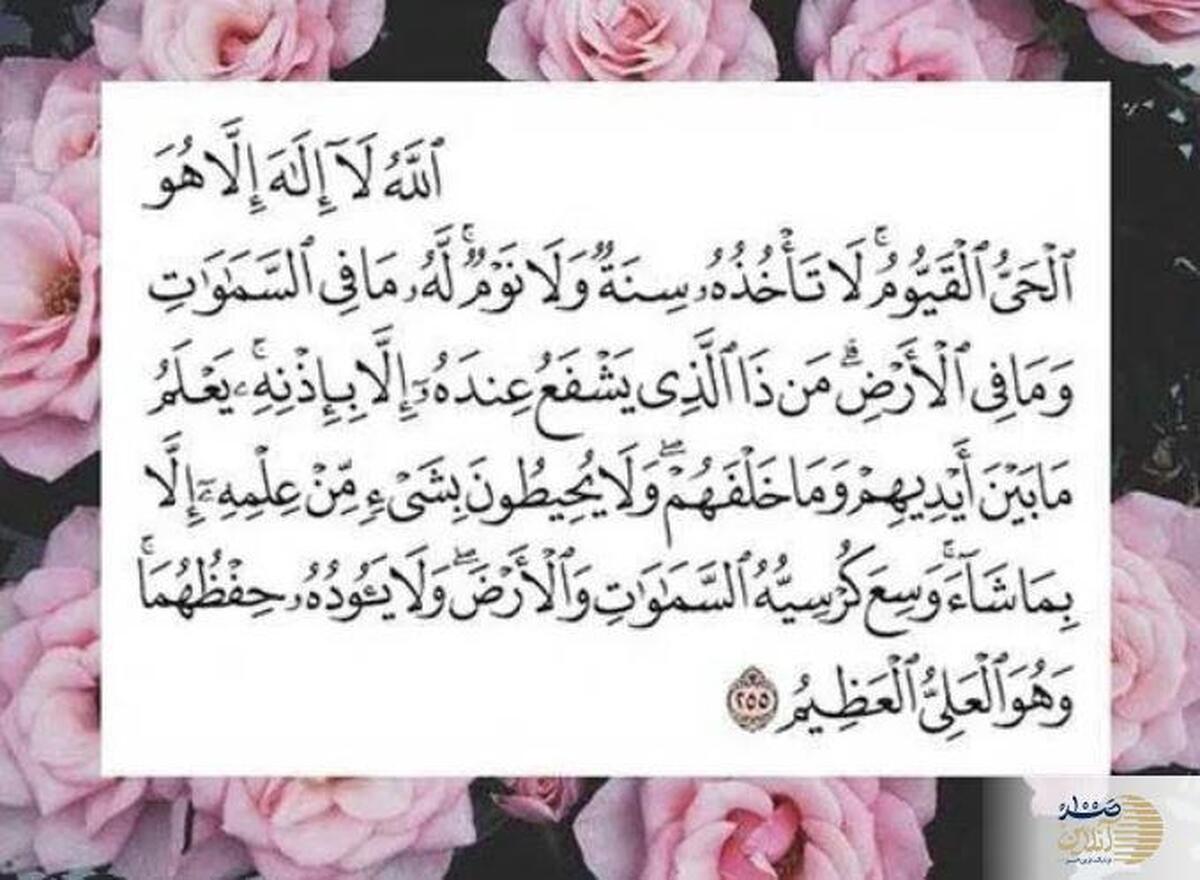 ٱللَّهُ لَآ إِلَٰهَ إِلَّا هُوَ
ٱلْحَىُّ ٱلْقَيُّومُ ۚ لَا تَأْخُذُهُۥ سِنَةٌ وَلَا نَوْمٌ ۚ لَّهُۥ مَا فِى ٱلسَّمَٰوَٰتِ
وَمَا فِى ٱلْأَرْضِ ۗ مَن ذَا ٱلَّذِى يَشْفَعُ عِندَهُۥٓ إِلَّا بِإِذْنِهِۦ ۚ يَعْلَمُ
مَا بَيْنَ أَيْدِيهِمْ وَمَا خَلْفَهُمْ ۖ وَلَا يُحِيطُونَ بِشَىْءٍ مِّنْ عِلْمِهِۦٓ إِلَّا
بِمَا شَآءَ ۚ وَسِعَ كُرْسِيُّهُ ٱلسَّمَٰوَٰتِ وَٱلْأَرْضَ ۖ وَلَا يَـُٔودُهُۥ حِفْظُهُمَا ۚ
وَهُوَ ٱلْعَلِىُّ ٱلْعَظِيمُ ٢٥٥
آنلاین